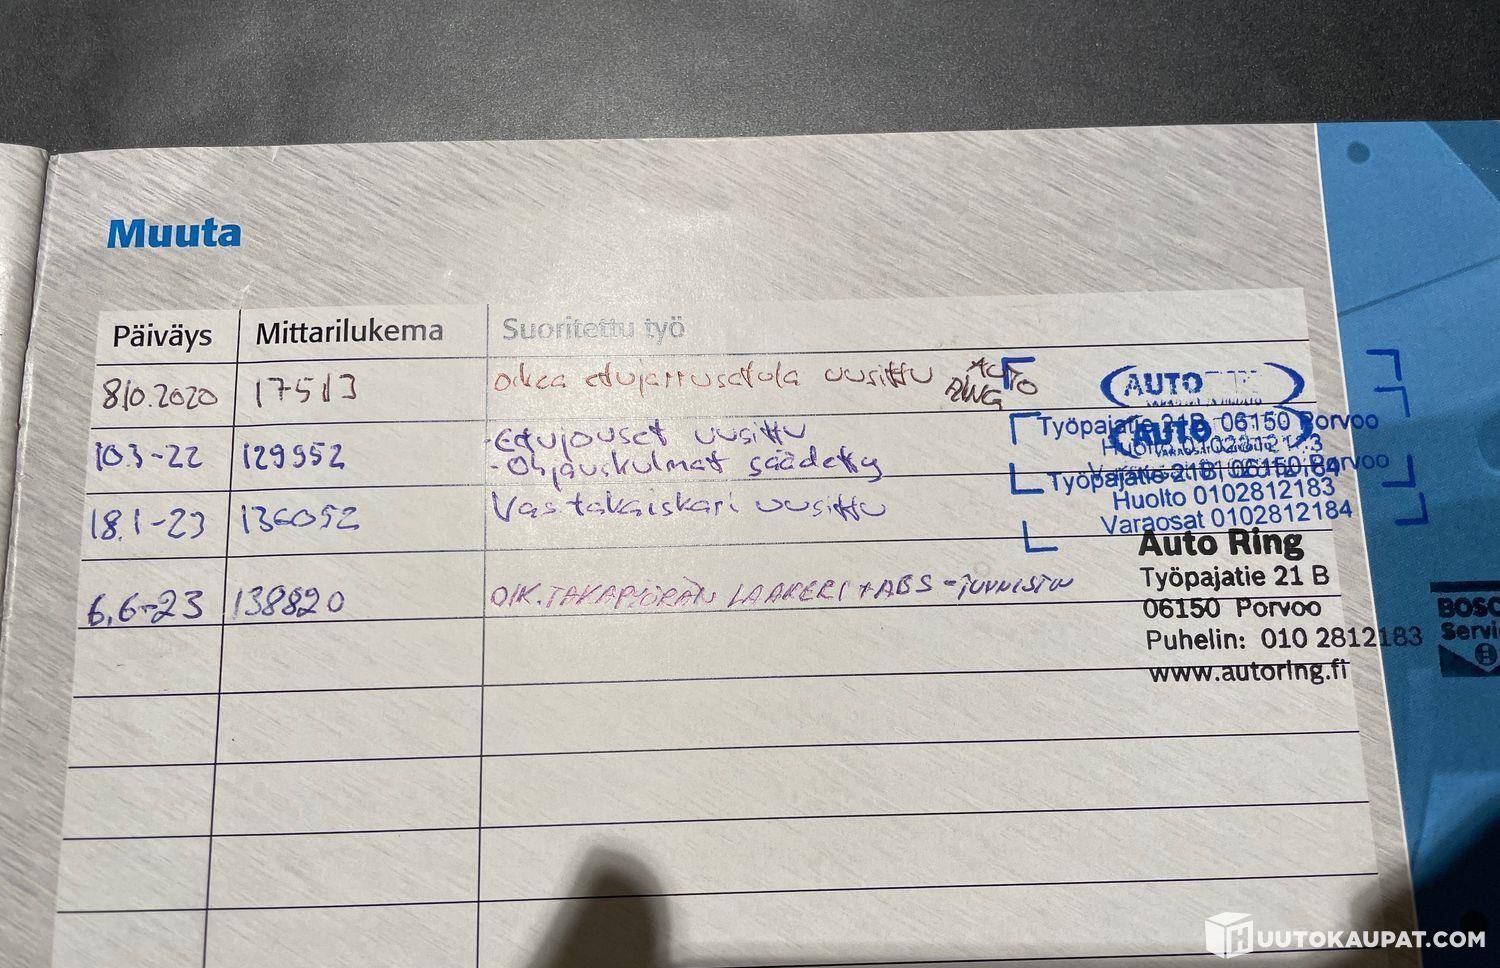 Muuta
Päiväys Mittarilukema Suoritettu työ
8.10.2020 117513 oikea etujarrusatula uusittu AUTO RING
10.3-22 129952 -Etujouset uusittu
-Ohjauskulmat säädetty
18.1-23 136052 Vastakaiskari uusittu
6.6-23 138820 OIK. TAKAPYÖRÄN LAAKERI + ABS-TUNNISTIN
AUTO
Työpajatie 21B 06150 Porvoo
AUTO
Työpajatie 21B 06150 Porvoo
Huolto 0102812183
Varaosat 0102812184
Auto Ring
Työpajatie 21 B
06150 Porvoo
Puhelin: 010 2812183
www.autoring.fi
BOSC
Servi
HUUTOKAUPAT.COM